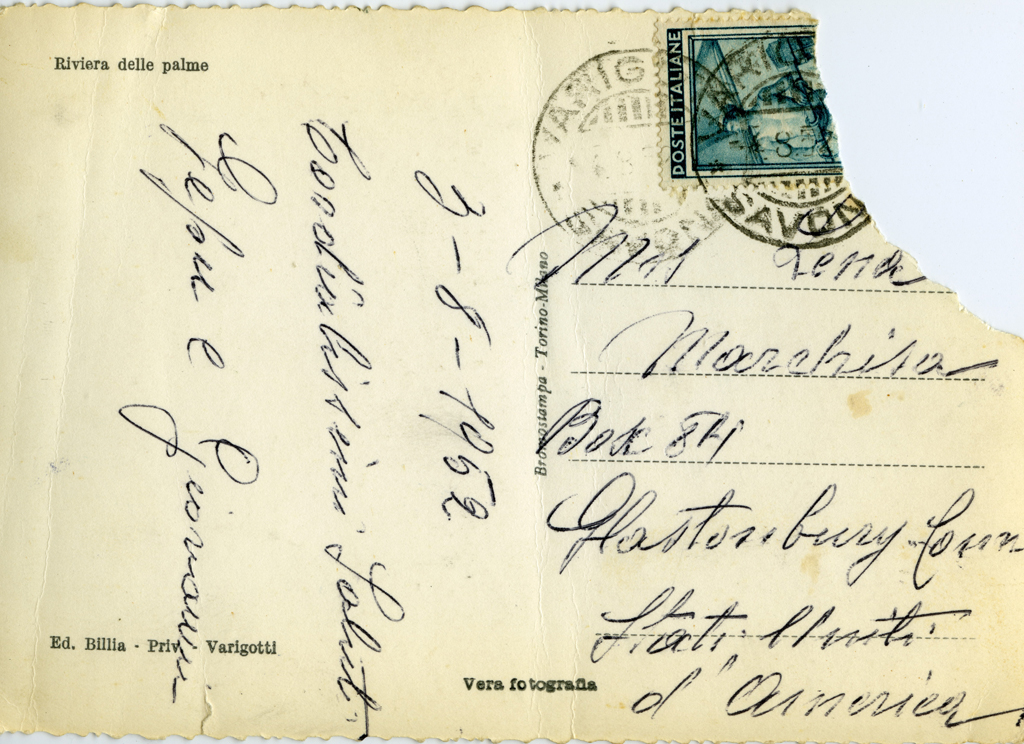 Riviera delle palme
3-8-1952
Cordialissimi Saluti
e
Giovanni
Ed. Billia - Priv. Varigotti
Vera fotografia
Bromostampa - Torino-Milano
POSTE ITALIANE
VARIG
SAVONA
SAVON
Lena
Marchisa
Box 84
Glastonbury-Conn
Stati Uniti
d'America